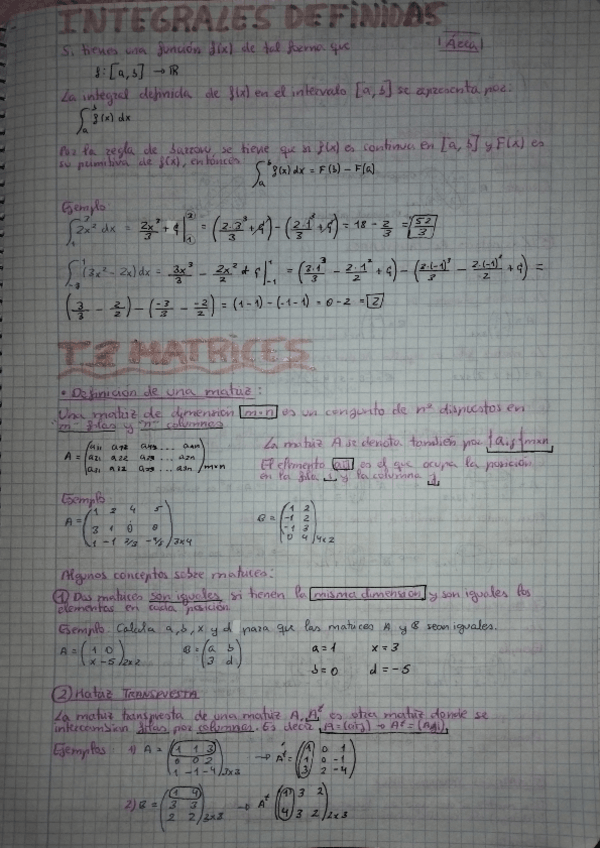 INTEGRALES DEFINIDAS
Si tienes una función f(x) de tal forma que | Área |
f: [a, b] → ℝ
La integral definida de f(x) en el intervalo [a, b] se representa por:
∫ₐᵇ f(x) dx
Por la regla de Barrow, se tiene que si f(x) es continua en [a, b] y F(x) es
su primitiva de f(x), entonces ∫ₐᵇ f(x) dx = F(b) - F(a)
Ejemplo
∫₁³ 2x² dx = 2x³/3 + C |₁³ = (2·3³/3 + C) - (2·1³/3 + C) = 18 - 2/3 = 52/3
(3x² - 2x) dx = 3x³/3 - 2x²/2 + C |₋₁¹ = (3·1³/3 - 2·1²/2 + C) - (3·(-1)³/3 - 2·(-1)²/2 + C) =
(3/3 - 2/2) - (-3/3 - -2/2) = (1-1) - (-1-1) = 0-2 = 2
T.2 MATRICES
• Definición de una matriz:
Una matriz de dimensión m×n es un conjunto de nº dispuestos en
"m" filas y "n" columnas
La matriz A se denota también por (aij)m×n
El elemento aij es el que ocupa la posición
en la fila i y la columna j
Ejemplo
A = (1 2 4 5
3 1 0 0
1 -1 )3x4
B = (1 2
-1 2
-1 3
0 4)4x2
Algunos conceptos sobre matrices:
① Dos matrices son iguales si tienen la misma dimensión y son iguales los
elementos en cada posición
Ejemplo: Calcula a, b, x y d para que las matrices A y B sean iguales.
A = (1 0
x -5)2x2
B = (a b
3 d)
a = 1 x = 3
b = 0 d = -5
② Matriz TRANSPUESTA
La matriz transpuesta de una matriz A, Aᵗ es otra matriz donde se
intercambian filas por columnas. Es decir A = (aij) → Aᵗ = (aji)
Ejemplos: 1) A = (1 1 3
0 0 2
1 -1 -4)3x3
→ Aᵗ = (1 0 1
1 0 -1
3 2 -4)
2) B = (1 4
3 3
2 2)3x2
→ Aᵗ (1 3 2
4 3 2)2x3